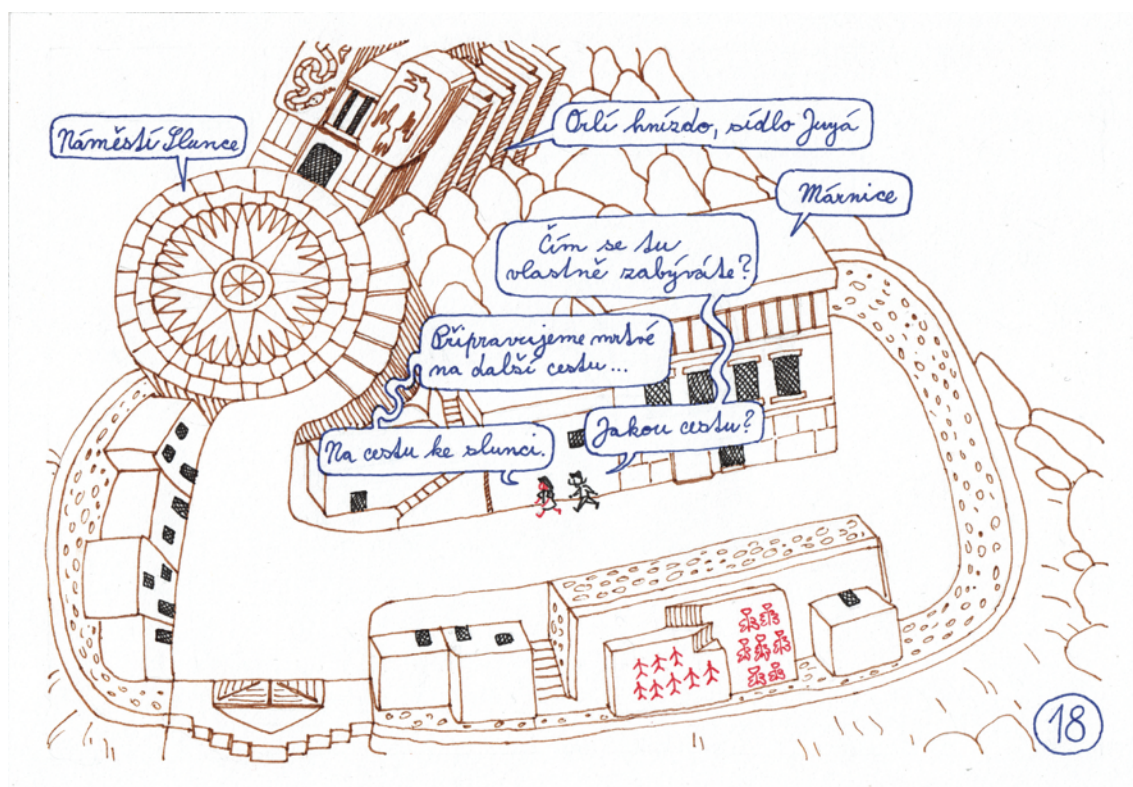 Náměstí Slunce
Orlí hnízdo, sídlo Juyá
Márnice
Čím se tu
vlastně zabýváte?
Připravujeme mrtvé
na další cestu...
Jakou cestu?
Na cestu ke slunci.
18